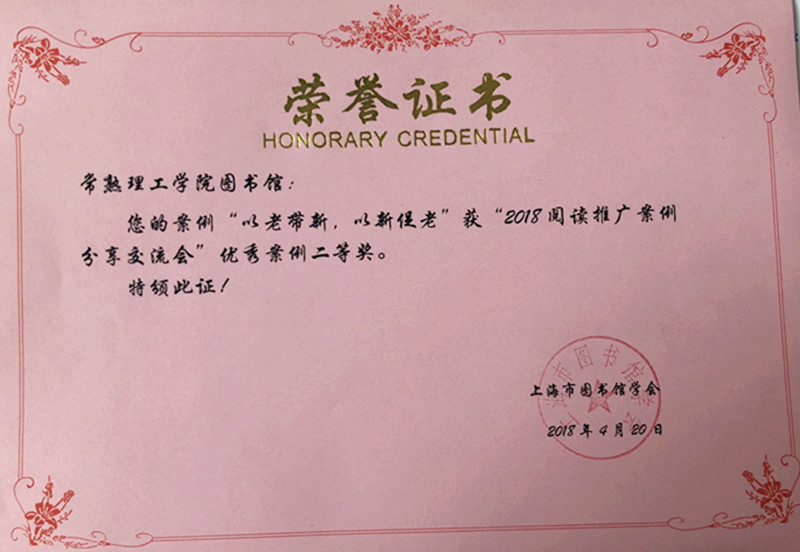 荣誉证书
HONORARY CREDENTIAL
常熟理工学院图书馆：
您的案例“以老带新，以新促老”获“2018阅读推广案例
分享交流会”优秀案例二等奖。
特颁此证！
上海市图书馆学会
上海市图书馆学会
2018年4月20日